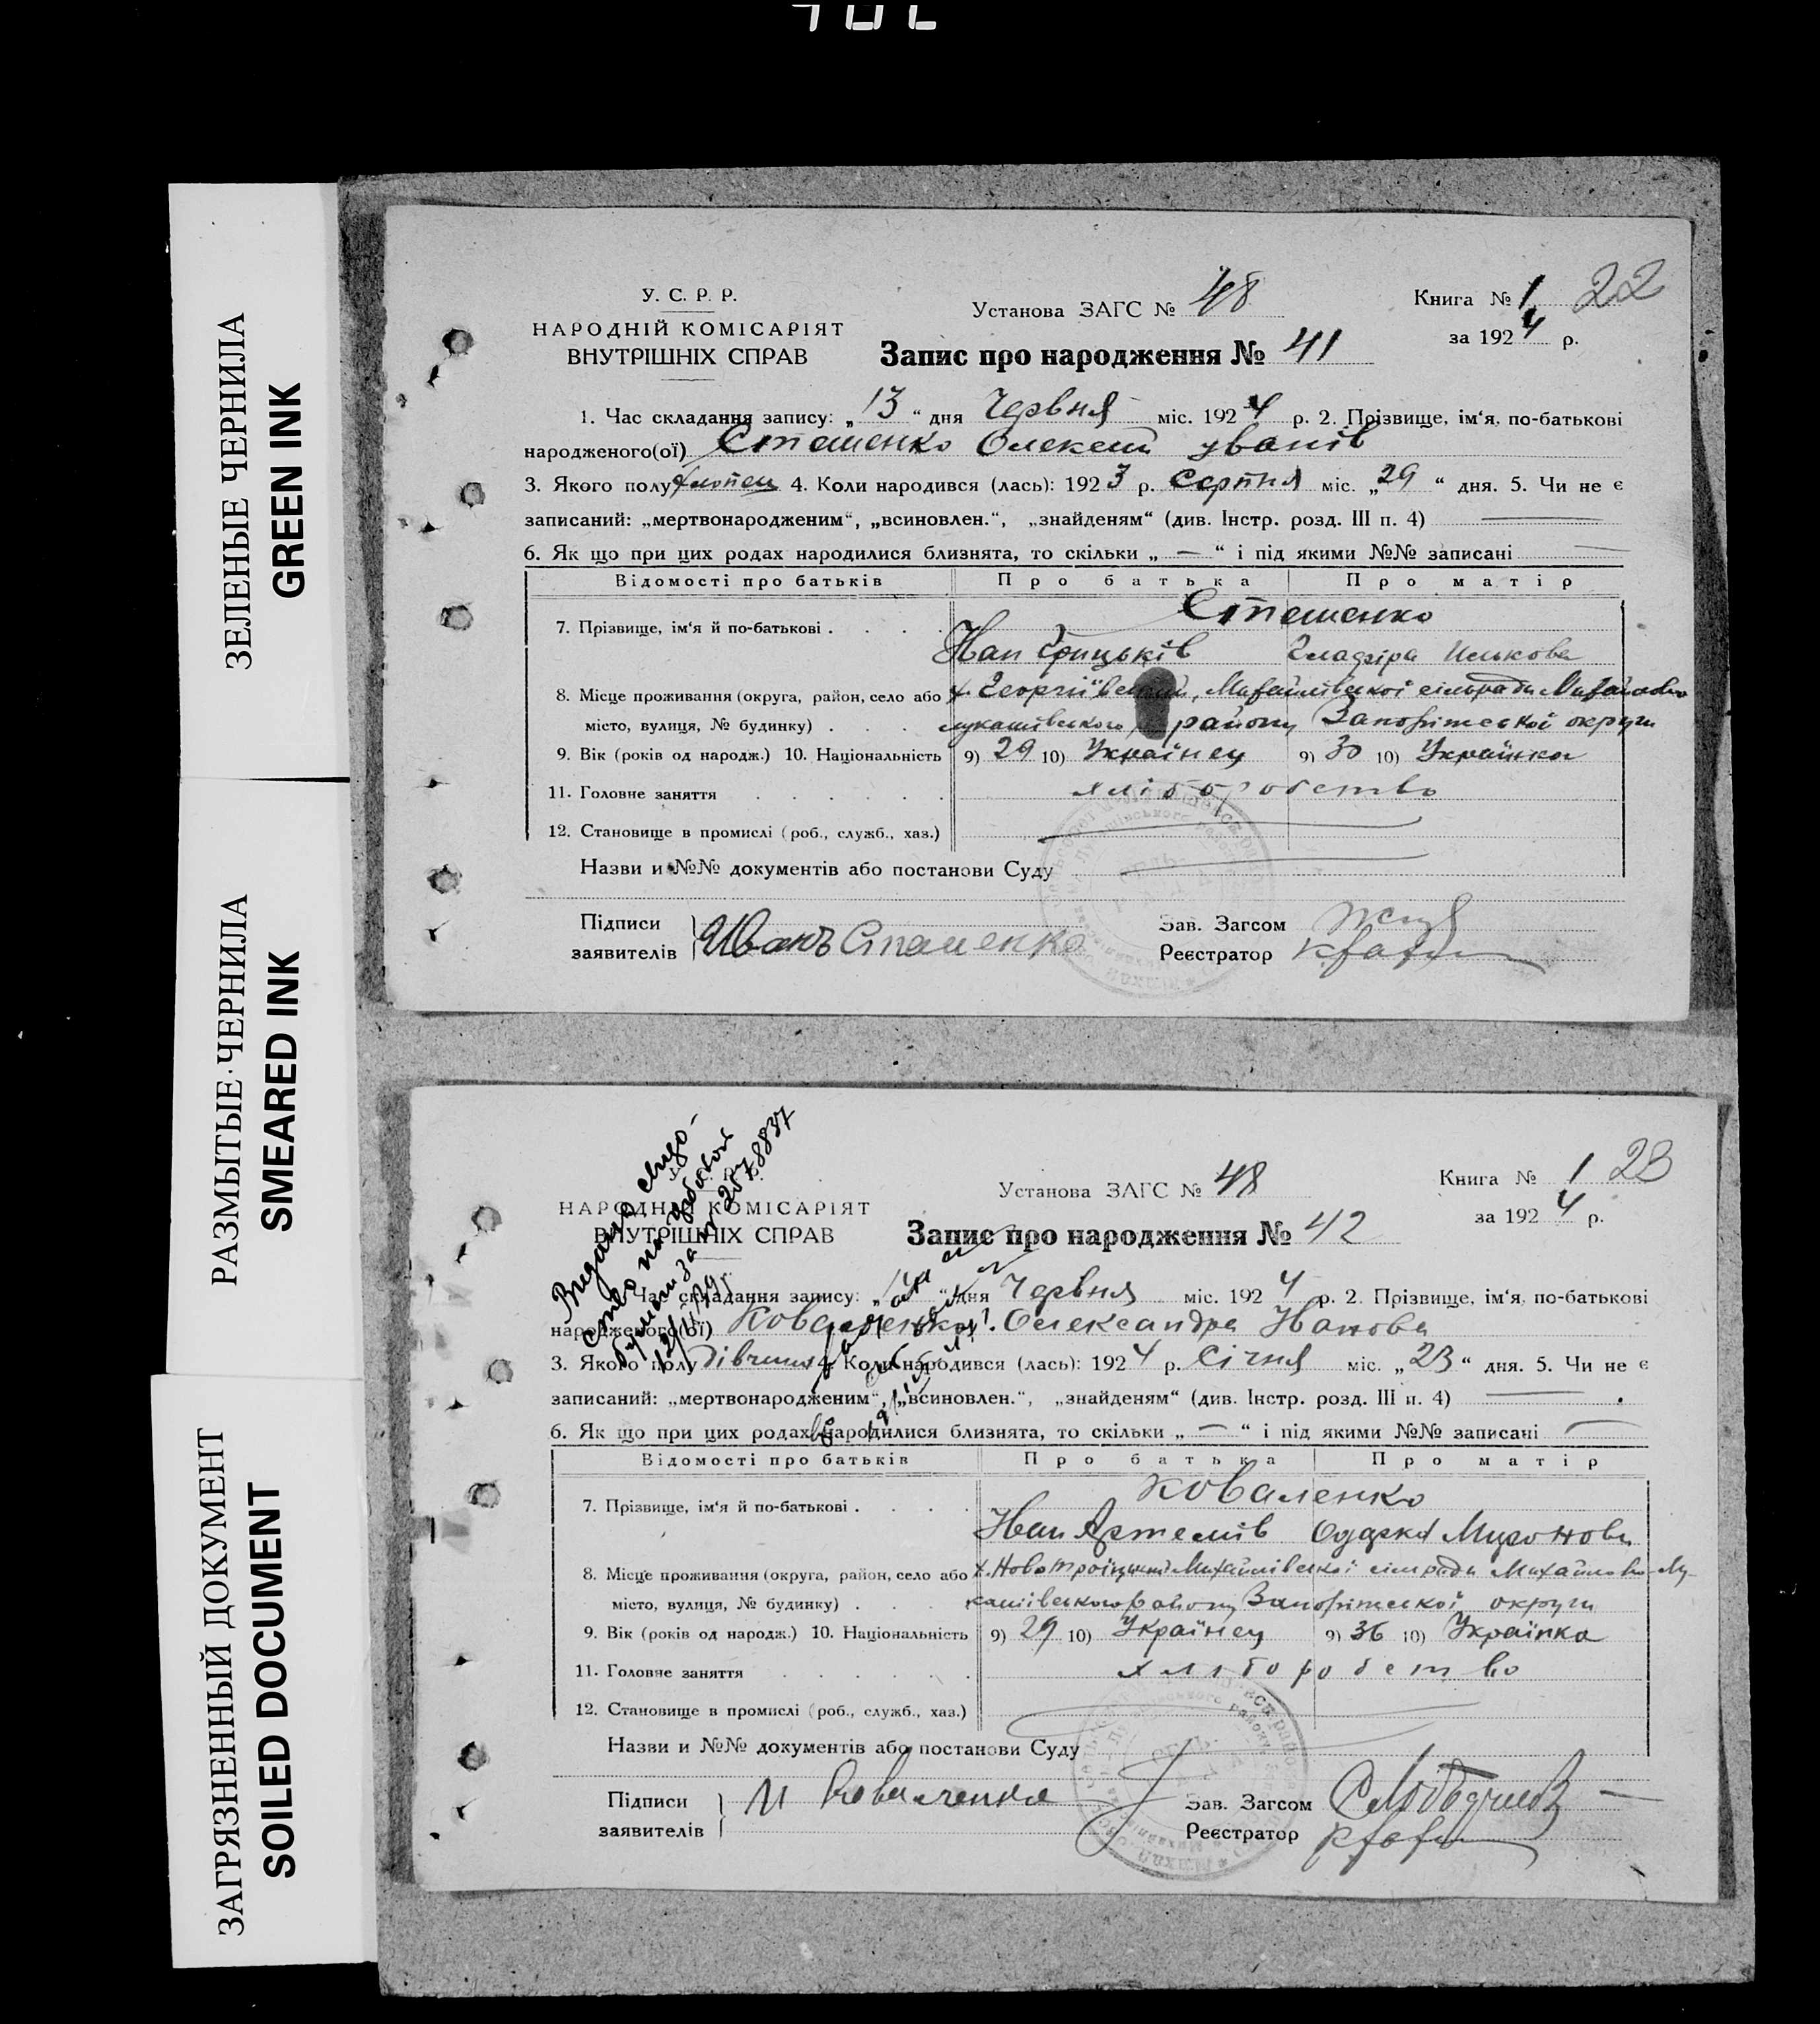 ЗЕЛЕНЫЕ ЧЕРНИЛА
GREEN INK
РАЗМЫТЫЕ ЧЕРНИЛА
SMEARED INK
ЗАГРЯЗНЕННЫЙ ДОКУМЕНТ
SOILED DOCUMENT
У. С. Р. Р.
НАРОДНІЙ КОМІСАРІЯТ
ВНУТРІШНІХ СПРАВ
Установа ЗАГС № 48
Книга № 1 22
за 1924 р.
Запис про народження № 41
1. Час складання запису: „13“ дня Червня міс. 1924 р. 2. Прізвище, ім‘я, по-батькові
народженого(ої) Сташенко Олексій Іванів
3. Якого полу хлопец 4. Коли народився (лась): 1923 р. Серпня міс. „29“ дня. 5. Чи не є
записаний: „мертвонародженим“, „всиновлен.“, „знайденям“ (див. Інстр. розд. III п. 4) —
6. Як що при цих родах народилися близнята, то скільки „ — “ і під якими №№ записані —
Відомості про батьків Про батька Про матір
Сташенко
7. Прізвище, ім‘я й по-батькові . . . . Іван Грицьків
8. Місце проживання (округа, район, село або х. Георгіївський, Михайлівської сільради Михайлово
місто, вулиця, № будинку) . . . лукашівського району Запорізської округи
9. Вік (років од народж.) 10. Національність 9) 29 10) Українец 9) 30 10) Українка
11. Головне заняття . . . . . . хліборобство
12. Становище в промислі (роб., служб., хаз.)
Назви и №№ документів або постанови Суду
Підписи
заявителів Иванъ Сташенко
Зав. Загсом
Реєстратор
Видано свідо-
12/IV 39
НАРОДНІЙ КОМІСАРІЯТ
ВНУТРІШНІХ СПРАВ
Установа ЗАГС № 48
Книга № 1 23
за 1924 р.
Запис про народження № 42
Час складання запису: „14“ дня Червня міс. 1924 р. 2. Прізвище, ім‘я, по-батькові
народженого(ої) Коваленко Олександра Іванова
3. Якого полу дівчина 4. Коли народився (лась): 1924 р. Січня міс. „23“ дня. 5. Чи не є
записаний: „мертвонародженим“, „всиновлен.“, „знайденям“ (див. Інстр. розд. III п. 4) —
6. Як що при цих родах народилися близнята, то скільки „ — “ і під якими №№ записані —
Відомості про батьків Про батька Про матір
Коваленко
7. Прізвище, ім‘я й по-батькові . . . . Іван Артемів Одарка Миронова
8. Місце проживання (округа, район, село або х. Новотроїцький Михайлівської сільради Михайлово-Лу-
місто, вулиця, № будинку) . . . кашівського району Запорізської округи
9. Вік (років од народж.) 10. Національність 9) 29 10) Українец 9) 36 10) Українка
11. Головне заняття . . . . . . хліборобство
12. Становище в промислі (роб., служб., хаз.)
Назви и №№ документів або постанови Суду
Підписи
заявителів И Коваленко
Зав. Загсом
Реєстратор